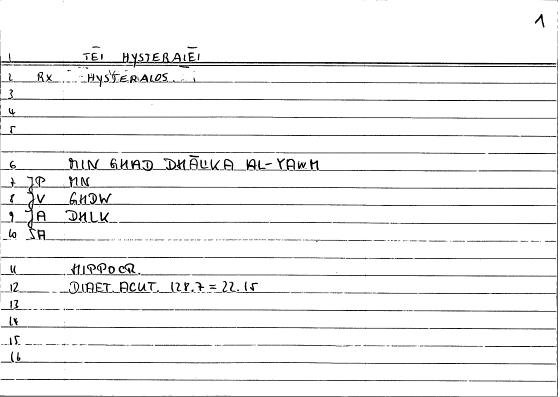 1
1 TĒI HYSTERAIĒI
2 Rx HYSTERAIOS.
3
4
5
6 MIN GHAD DHĀLIKA AL-YAWM
7 JP MN
8 JV GHDW
9 JA DHLK
10 SA
11 HIPPOCR.
12 DIAET. ACUT. 128.7 = 22.15
13
14
15
16